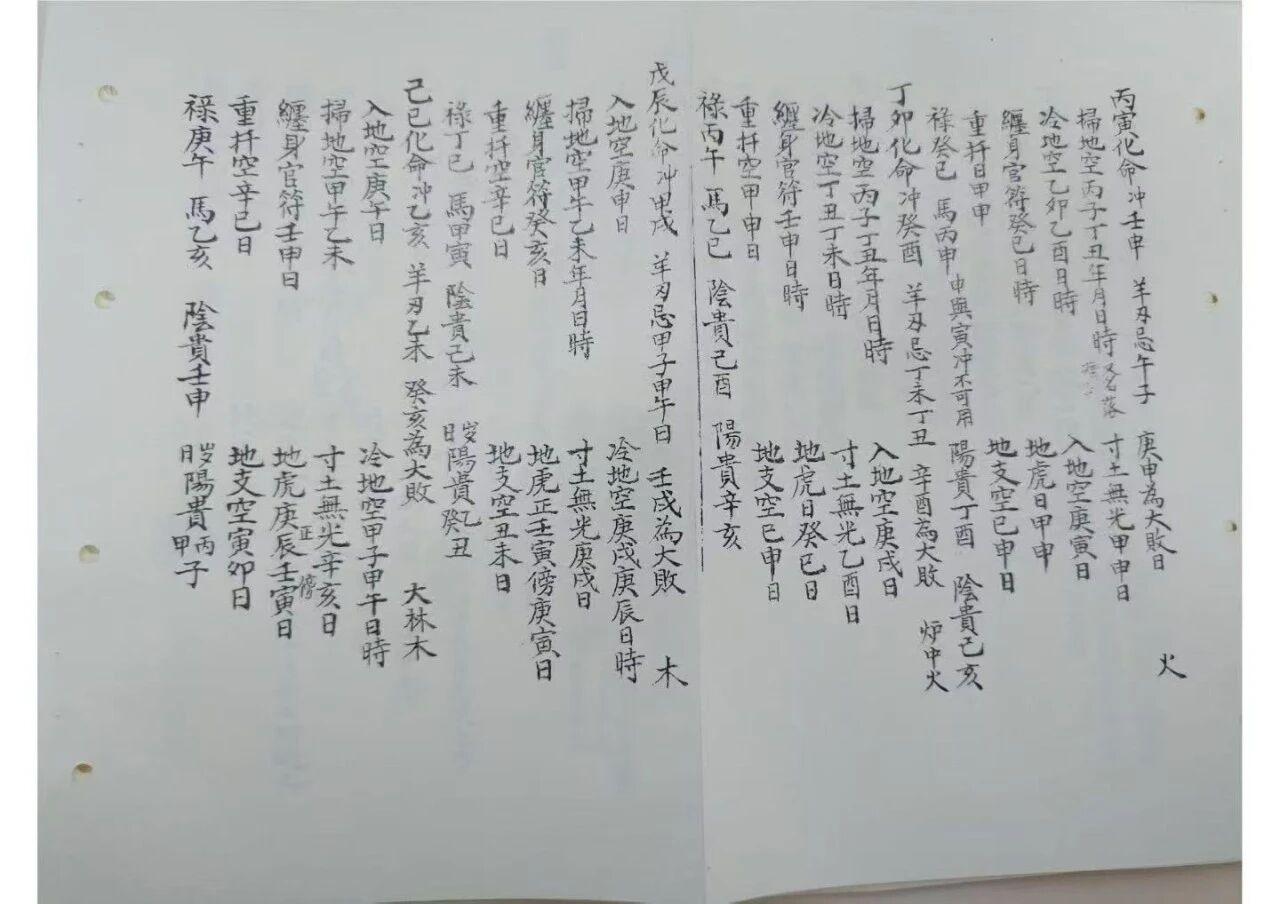 丙寅化命冲壬申 羊刃忌午子 庚申為大敗日 火
掃地空丙子丁丑年月日時 寸土無光甲申日
冷地空乙卯乙酉日時 入地空庚寅日
纏身官符癸巳日時 地虎日甲申
重扦日甲申 地支空巳申日
祿癸巳 馬丙申 申與寅冲不可用 陽貴丁酉 陰貴己亥
丁卯化命冲癸酉 羊刃忌丁未丁丑 辛酉為大敗 炉中火
掃地空丙子丁丑年月日時 入地空庚戌日
冷地空丁丑丁未日時 寸土無光乙酉日
纏身官符壬申日時 地虎日癸巳日
重扦空甲申日 地支空巳申日
祿丙午 馬乙巳 陰貴己酉 陽貴辛亥
戊辰化命冲甲戌 羊刃忌甲子甲午日 壬戌為大敗 木
入地空庚申日 冷地空庚戌庚辰日時
掃地空甲午乙未年月日時 寸土無光庚戌日
纏身官符癸亥日 地虎正壬寅傍庚寅日
重扦空辛巳日 地支空丑未日
祿丁巳 馬甲寅 陰貴己未 陽貴乙癸丑
己巳化命冲乙亥 羊刃乙未 癸亥為大敗 大林木
入地空庚午日 冷地空甲子甲午日時
掃地空甲午乙未 寸土無光辛亥日
纏身官符壬申日 地虎庚辰正壬寅傍日
重扦空辛巳日 地支空寅卯日
祿庚午 馬乙亥 陰貴壬申 陽貴丙甲子